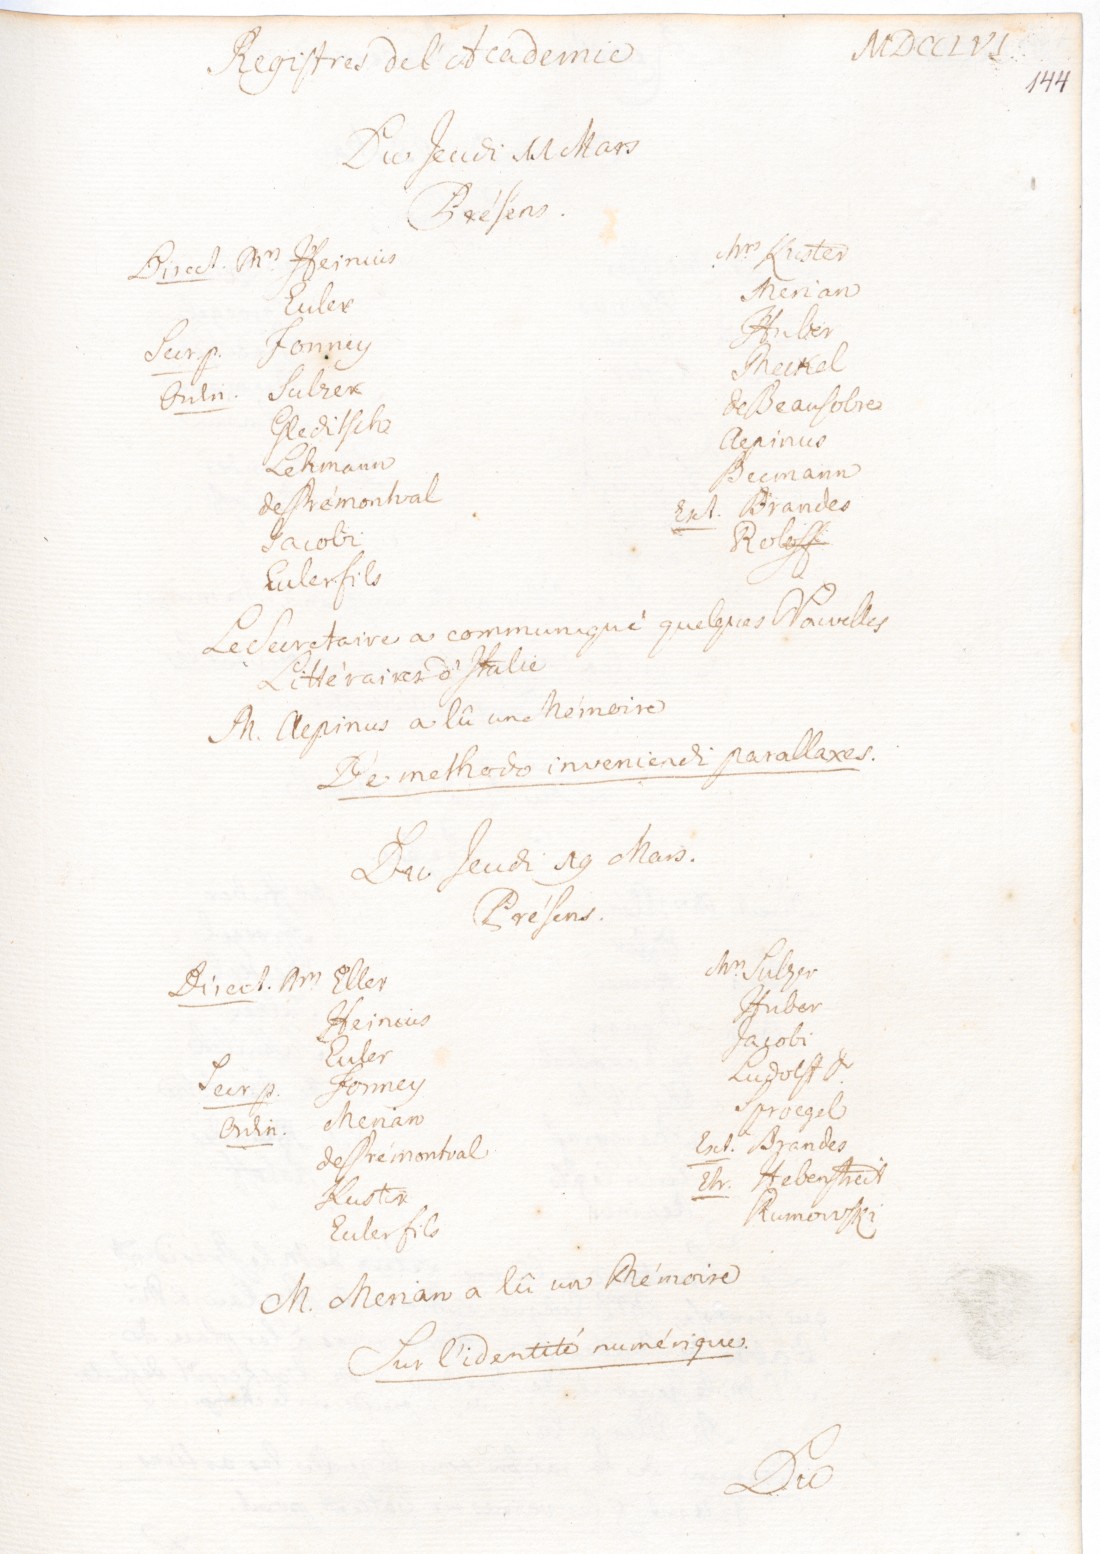 Registres de l'Academie
MDCCLVI
144
Du Jeudi 11 Mars
Présens.
Direct. Mrs Heinius
Euler
Secr p. Formey
Ordin. Sulzer
Gleditsch
Lehmann
de Prémontval
Jacobi
Euler fils
Mrs Kuster
Merian
Huber
Meckel
de Beausobre
Aepinus
Becmann
Ext. Brandes
Roloff
Le Secretaire a communiqué quelques Nouvelles
Littéraires d'Italie
M. Aepinus a lû un Mémoire
De methodo inveniendi parallaxes.
Du Jeudi 19 Mars.
Présens.
Direct. Mrs Eller
Heinius
Euler
Secr p. Formey
Ordin. Merian
de Prémontval
Kuster
Euler fils
Mrs Sulzer
Huber
Jacobi
Ludolff
Sproegel
Ext. Brandes
Etr. Hebenstreit
Rumowski
M. Merian a lû un Mémoire
Sur l'identité numérique.
Du